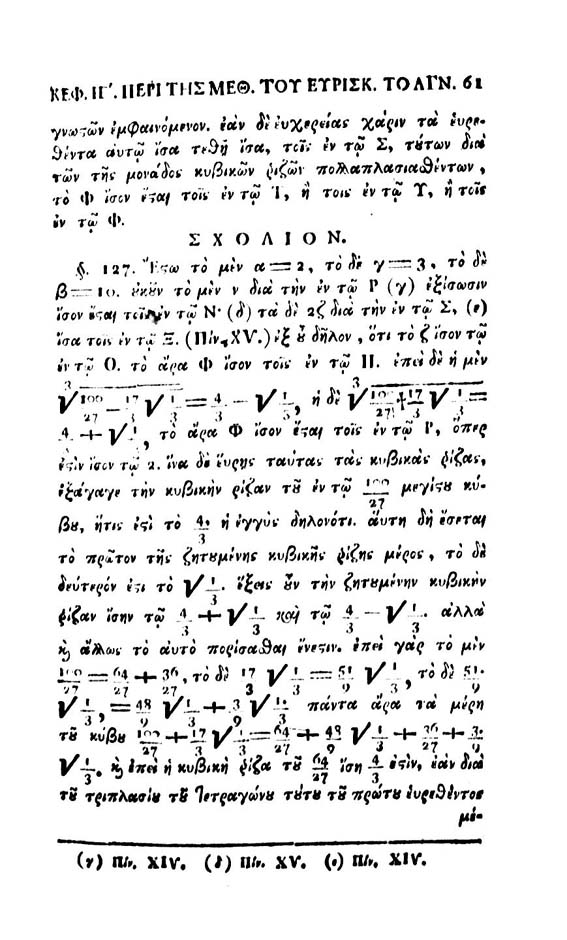 ΚΕΦ. ΙΓ΄. ΠΕΡΙ ΤΗΣ ΜΕΘ. ΤΟΥ ΕΥΡΙΣΚ. ΤΟ ΑΓΝ. 61
γνωστῶν ἐμφαινόμενον. ἐὰν δὲ εὐχερείας χάριν τὰ εὑρε-
θέντα αὐτῷ ἴσα τεθῇ ἴσα, τοῖς ἐν τῷ Σ, τούτων διὰ
τῶν τῆς μονάδος κυβικῶν ῥιζῶν πολλαπλασιασθέντων,
τὸ Φ ἴσον ἔσται τοῖς ἐν τῷ Τ, ἢ τοῖς ἐν τῷ Υ, ἢ τοῖς
ἐν τῷ Φ.
ΣΧΟΛΙΟΝ.
§. 127. Ἔστω τὸ μὲν α = 2, τὸ δὲ γ = 3, τὸ δὲ
β = 10. ἐκοῦν τὸ μὲν ν διὰ τὴν ἐν τῷ Ρ (γ) ἐξίσωσιν
ἴσον ἔσται τοῖς ἐν τῷ Ν· (δ) τὰ δὲ 2ζ διὰ τὴν ἐν τῷ Σ, (ε)
ἴσα τοῖς ἐν τῷ Ξ. (Πίν. XV.) ἐξ οὗ δῆλον, ὅτι τὸ ζ ἴσον τῷ
ἐν τῷ Ο. τὸ ἄρα Φ ἴσον τοῖς ἐν τῷ Π. ἐπεὶ δὲ ἡ μὲν
∛(100/27 − 17/3 √1/3) = 4/3 − √1/3, ἡ δὲ ∛(100/27 + 17/3 √1/3) =
4/3 + √1/3, τὸ ἄρα Φ ἴσον ἔσται τοῖς ἐν τῷ Ρ, ὅπερ
ἐστὶν ἴσον τῷ 2. ἵνα δὲ εὕρῃς ταύτας τὰς κυβικὰς ῥίζας,
ἐξάγαγε τὴν κυβικὴν ῥίζαν τοῦ ἐν τῷ 100/27 μεγίστου κύ-
βου, ἥτις ἐστὶ τὸ 4/3. ἡ ἐγγὺς δηλονότι. αὕτη δὴ ἔσεται
τὸ πρῶτον τῆς ζητουμένης κυβικῆς ῥίζης μέρος, τὸ δὲ
δεύτερόν ἐστι τὸ √1/3. ἕξεις οὖν τὴν ζητουμένην κυβικὴν
ῥίζαν ἴσην τῷ 4/3 + √1/3 καὶ τῷ 4/3 − √1/3. ἀλλὰ
καὶ ἄλλως τὸ αὐτὸ πορίσασθαι ἔνεστιν. ἐπεὶ γὰρ τὸ μὲν
100/27 = 64/27 + 36/27, τὸ δὲ 17/3 √1/3 = 51/9 √1/3, τὸ δὲ 51/9
√1/3, = 48/9 √1/3 + 3/9 √1/3. πάντα ἄρα τὰ μέρη
τοῦ κύβου 100/27 + 17/3 √1/3 = 64/27 + 48/9 √1/3 + 36/27 + 3/9
√1/3. καὶ ἐπεὶ ἡ κυβικὴ ῥίζα τοῦ 64/27 ἴση 4/3 ἐστὶν, ἐὰν διὰ
τοῦ τριπλασίου τοῦ Τετραγώνου τούτου τοῦ πρώτου εὑρεθέντος
μέ-
(γ) Πίν. XIV. (δ) Πίν. XV. (ε) Πίν. XIV.